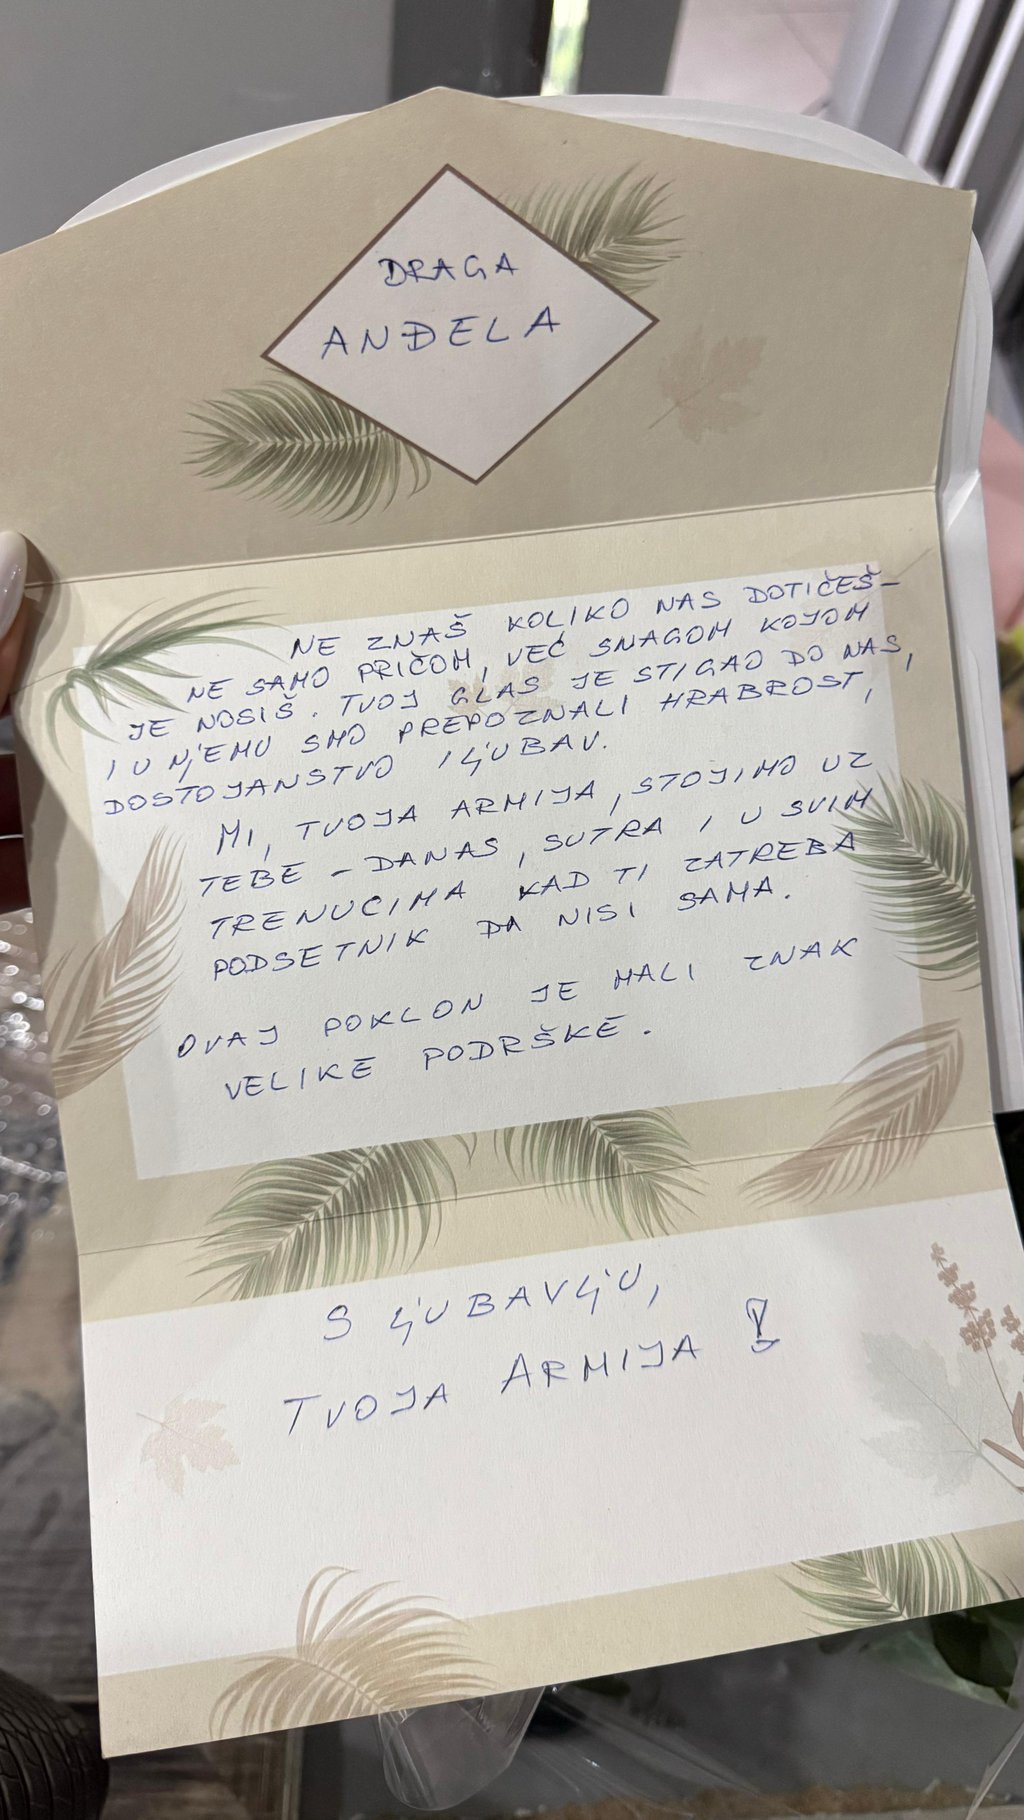 DRAGA
ANĐELA
NE ZNAŠ KOLIKO NAS DOTIČEŠ-
NE SAMO PRIČOM, VEĆ SNAGOM KOJOM
JE NOSIŠ. TVOJ GLAS JE STIGAO DO NAS,
I U NJEMU SMO PREPOZNALI HRABROST,
DOSTOJANSTVO I LJUBAV.
MI, TVOJA ARMIJA, STOJIMO UZ
TEBE - DANAS, SUTRA I U SVIM
TRENUCIMA KAD TI ZATREBA
PODSETNIK DA NISI SAMA.
OVAJ POKLON JE MALI ZNAK
VELIKE PODRŠKE.
S LJUBAVLJU,
TVOJA ARMIJA !